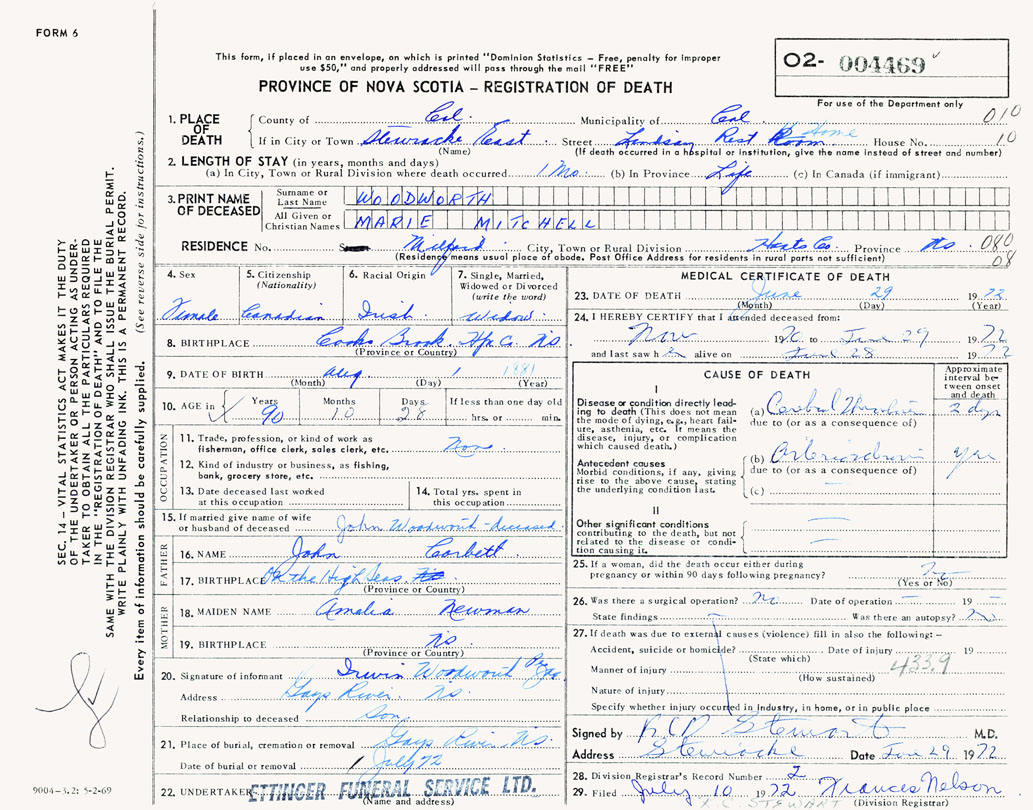 FORM 6
This form, if placed in an envelope, on which is printed "Dominion Statistics – Free, penalty for improper
use $50," and properly addressed will pass through the mail "FREE"
PROVINCE OF NOVA SCOTIA – REGISTRATION OF DEATH
O2- 004469
For use of the Department only
1. PLACE OF DEATH
County of Col. Municipality of Col 010
If in City or Town Stewiacke East Street Lindsay Rest Home House No. 10
(Name) (If death occurred in a hospital or institution, give the name instead of street and number)
2. LENGTH OF STAY (in years, months and days)
(a) In City, Town or Rural Division where death occurred 1 Mo. (b) In Province Life (c) In Canada (if immigrant)
3. PRINT NAME OF DECEASED
Surname or Last Name WOODWORTH
All Given or Christian Names MARIE MITCHELL
RESIDENCE No. Milford City, Town or Rural Division Hants Co. Province NS 080
(Residence means usual place of abode. Post Office Address for residents in rural parts not sufficient) 08
4. Sex
Female
5. Citizenship
(Nationality)
Canadian
6. Racial Origin
Irish
7. Single, Married,
Widowed or Divorced
(write the word)
Widow
8. BIRTHPLACE Cooks Brook Hfx Co. NS
(Province or Country)
9. DATE OF BIRTH Aug 1 1881
(Month) (Day) (Year)
10. AGE in
Years 90
Months 10
Days 28
If less than one day old
hrs. or min.
OCCUPATION
11. Trade, profession, or kind of work as
fisherman, office clerk, sales clerk, etc. None
12. Kind of industry or business, as fishing,
bank, grocery store, etc.
13. Date deceased last worked
at this occupation
14. Total yrs. spent in
this occupation
15. If married give name of wife
or husband of deceased John Woodworth - deceased
FATHER
16. NAME John Corbett
17. BIRTHPLACE On the High Seas
(Province or Country)
MOTHER
18. MAIDEN NAME Amelia Newman
19. BIRTHPLACE NS
(Province or Country)
20. Signature of informant Irwin Woodworth
Address Gays River NS.
Relationship to deceased Son
21. Place of burial, cremation or removal Gays River NS
Date of burial or removal 1 July 72
22. UNDERTAKER ETTINGER FUNERAL SERVICE LTD.
(Name and address)
MEDICAL CERTIFICATE OF DEATH
23. DATE OF DEATH June 29 1972
(Month) (Day) (Year)
24. I HEREBY CERTIFY that I attended deceased from:
Nov 1970 to June 29 1972
and last saw h er alive on June 28 1972
CAUSE OF DEATH
Approximate
interval be-
tween onset
and death
I
Disease or condition directly lead-
ing to death (This does not mean
the mode of dying, e.g., heart fail-
ure, asthenia, etc. It means the
disease, injury, or complication
which caused death.)
(a) Cerebral Thrombosis 2 dys
due to (or as a consequence of)
Antecedent causes
Morbid conditions, if any, giving
rise to the above cause, stating
the underlying condition last.
(b) Arteriosclerosis yrs
due to (or as a consequence of)
(c)
II
Other significant conditions
contributing to the death, but not
related to the disease or condi-
tion causing it.
25. If a woman, did the death occur either during
pregnancy or within 90 days following pregnancy? No
(Yes or No)
26. Was there a surgical operation? No Date of operation – 19 –
State findings Was there an autopsy? No
27. If death was due to external causes (violence) fill in also the following: –
Accident, suicide or homicide? Date of injury 19
(State which)
Manner of injury 433.9
(How sustained)
Nature of injury
Specify whether injury occurred in industry, in home, or in public place
Signed by R C D Stewart M.D.
Address Stewiacke Date Jun 29 1972
28. Division Registrar's Record Number 2
29. Filed July 10 1972 Frances Nelson
(Division Registrar)
R.C. STEWART
SEC. 14 – VITAL STATISTICS ACT MAKES IT THE DUTY
OF THE UNDERTAKER OR PERSON ACTING AS UNDER-
TAKER TO OBTAIN ALL THE PARTICULARS REQUIRED
IN THE "REGISTRATION OF DEATH" AND TO FILE THE
SAME WITH THE DIVISION REGISTRAR WHO SHALL ISSUE THE BURIAL PERMIT.
WRITE PLAINLY WITH UNFADING INK. THIS IS A PERMANENT RECORD.
Every item of information should be carefully supplied. (See reverse side for instructions.)
9004-3.2: 5-2-69